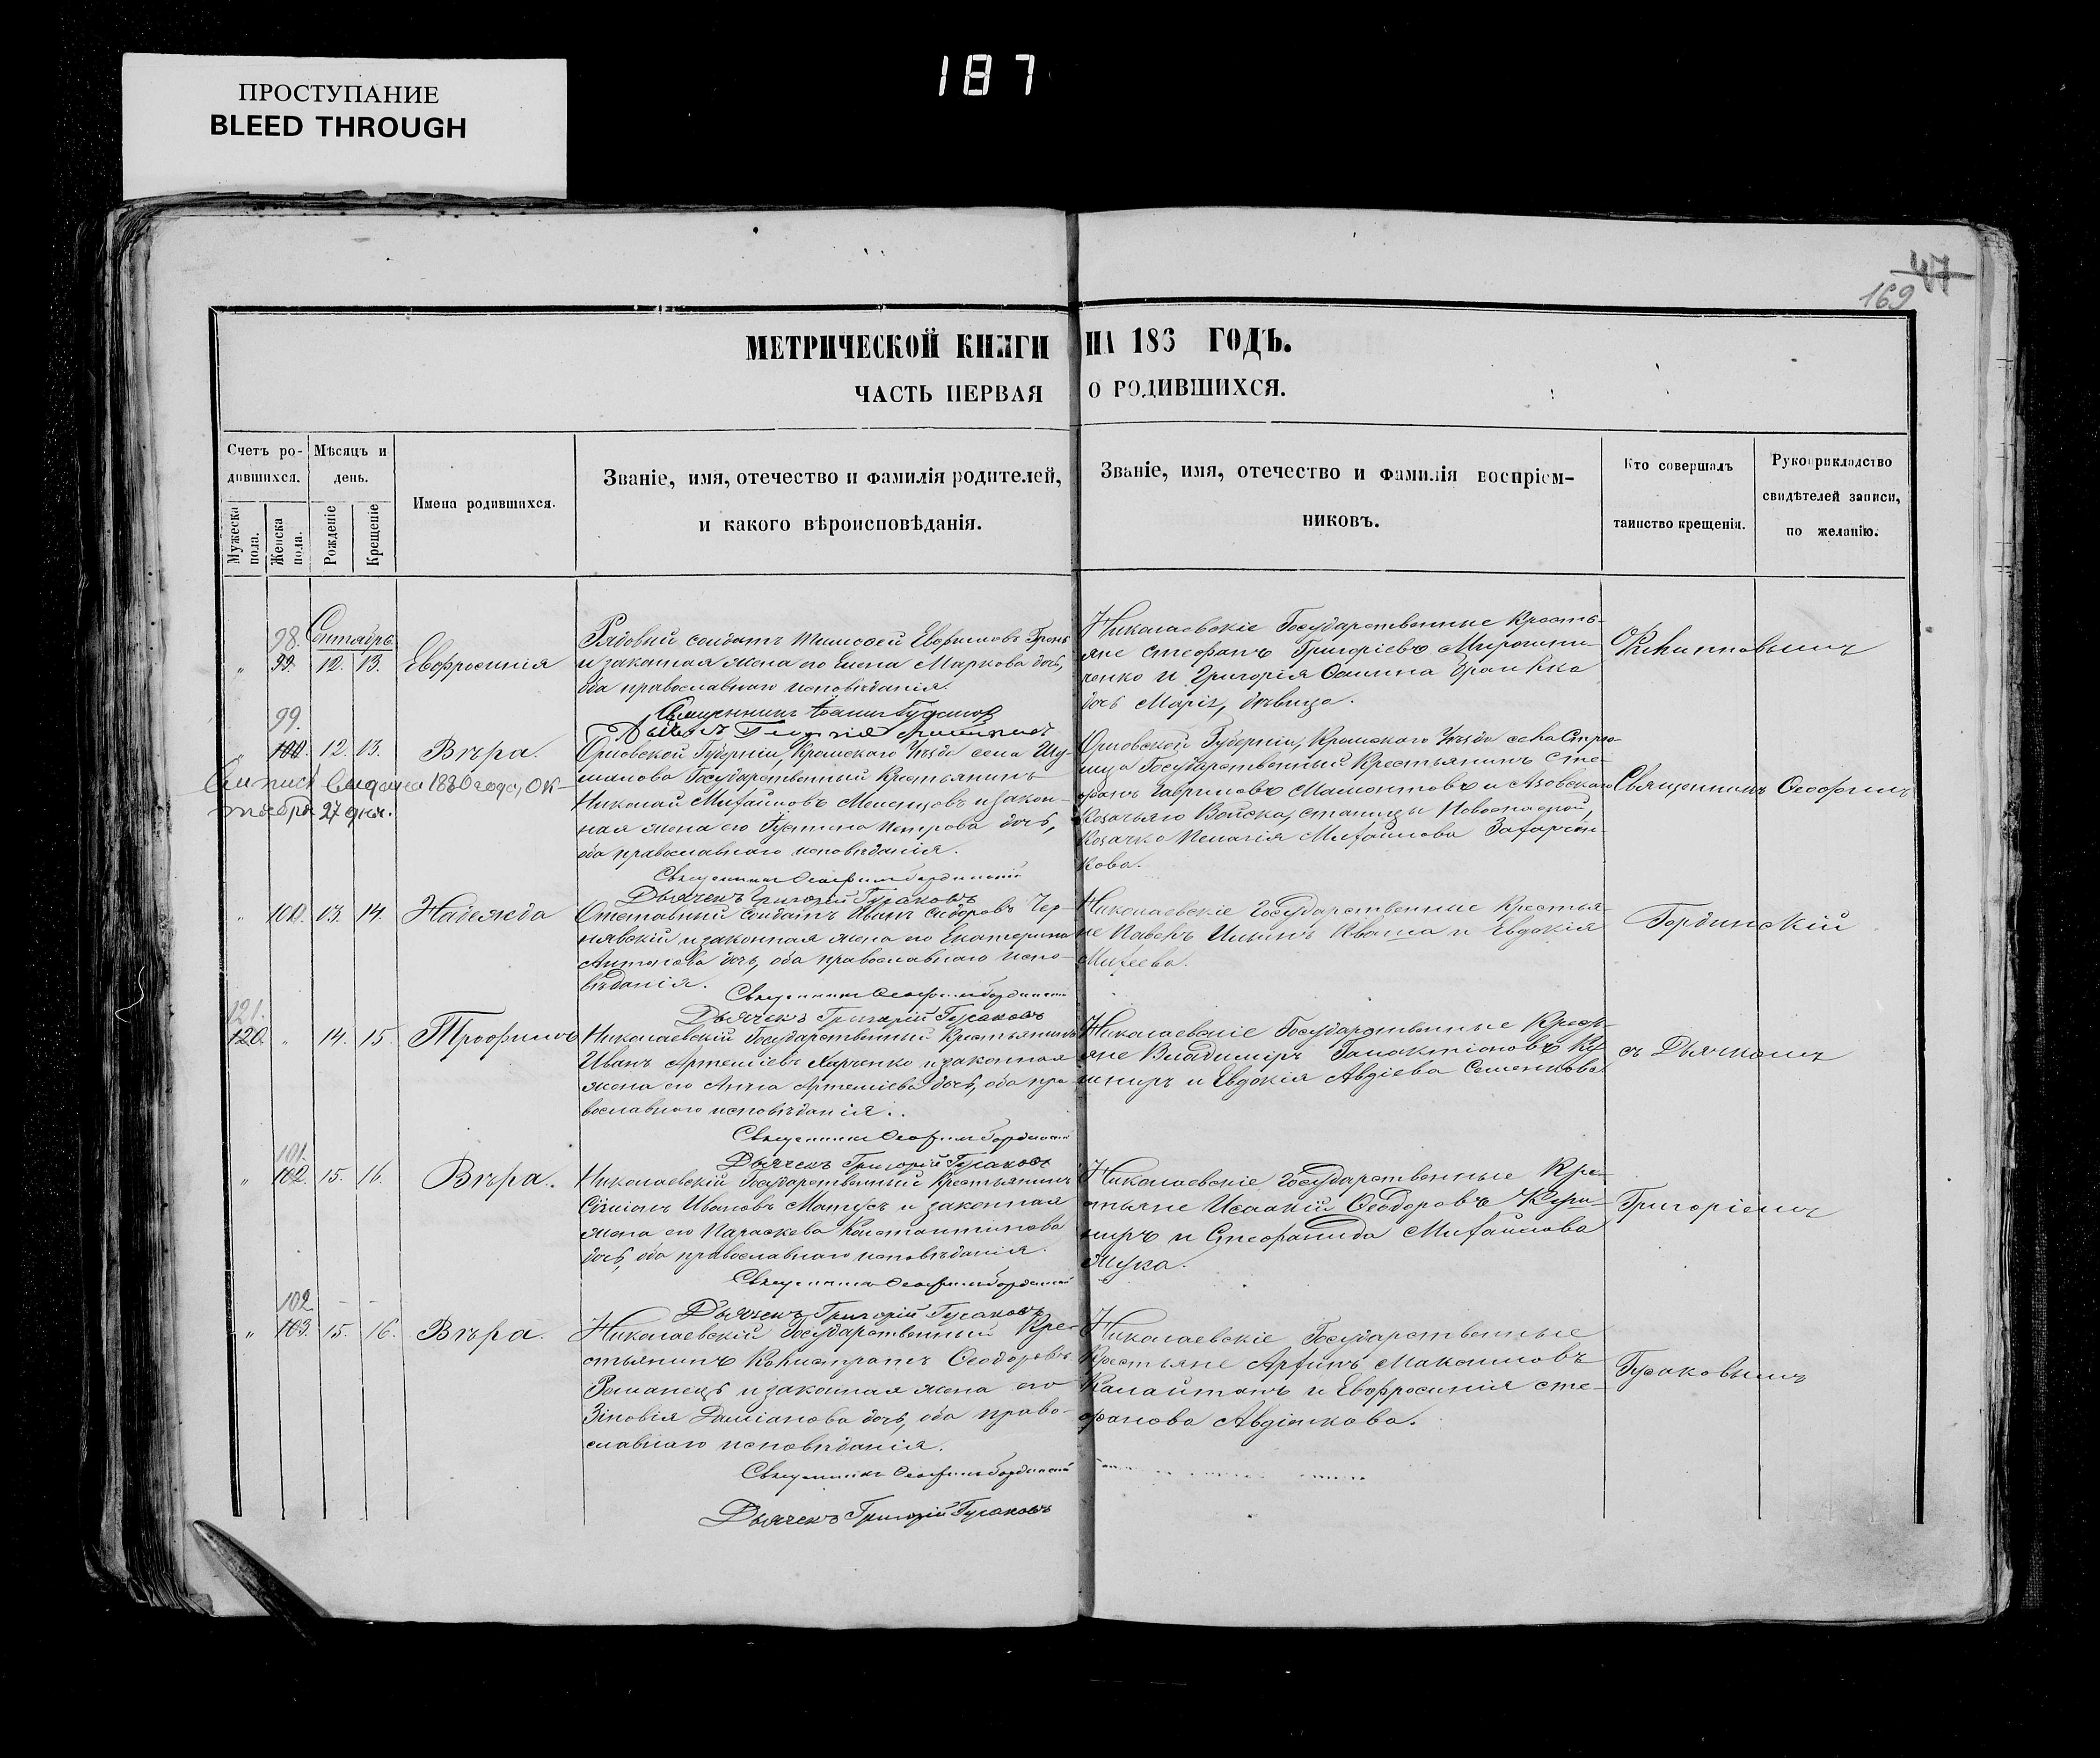 187
ПРОСТУПАНИЕ
BLEED THROUGH
47
169
МЕТРИЧЕСКОЙ КНИГИ НА 186 ГОДЪ.
ЧАСТЬ ПЕРВАЯ О РОДИВШИХСЯ.
Счетъ ро-
дившихся.
Мѣсяцъ и
день.
Мужеска
пола.
Женска
пола.
Рожденіе
Крещеніе
Имена родившихся.
Званіе, имя, отечество и фамилія родителей,
и какого вѣроисповѣданія.
Званіе, имя, отечество и фамилія воспріем-
никовъ.
Кто совершалъ
таинство крещенія.
Рукоприкладство
свидѣтелей записи,
по желанію.
98. Сентябрь
„ 99. 12. 13. Евфросинія
Рядовый солдатъ Тимофей Евфимовъ
и законная жена его Елена Маркова дочь,
оба православнаго исповѣданія.
Николаевскіе Государственные Кресть-
яне Стефанъ Григоріевъ Мирошни-
ченко и Григорія Фомина
дочь Марія, дѣвица.
99.
„ 100. 12. 13. Вѣра.
Выпись выдана 1880 года, Ок-
тября 27 дня.
Орловской Губерніи, Кромскаго Уѣзда села Шу-
шанова Государственный Крестьянинъ
Николай Михайловъ и закон-
ная жена его Іустина Петрова дочь,
оба православнаго исповѣданія.
Священникъ Ѳеофилъ Гординскій
Дьячекъ Григорій Гусаковъ
Орловской Губерніи, Кромскаго Уѣзда села
Государственный Крестьянинъ Сте-
фанъ Гавриловъ Мамонтовъ и Азовскаго
Козачьяго Войска, станицы Новоспаской,
Козачка Пелагія Михайлова Захарчен-
кова.
Священникъ Ѳеофилъ
„ 100. 13. 14. Надежда
Отставный солдатъ Иванъ Сидоровъ Чер-
нявскій и законная жена его Екатерина
Антонова дочь, оба православнаго испо-
вѣданія.
Священникъ Ѳеофилъ Гординскій
Дьячекъ Григорій Гусаковъ
Николаевскіе Государственные Крестья-
не Павелъ Ильинъ Кваша и Евдокія
Михеева.
Гординскій
121.
120. „ 14. 15. Трофимъ
Николаевскій Государственный Крестьянинъ
Иванъ Артеміевъ Харченко и законная
жена его Анна Артеміева дочь, оба пра-
вославнаго исповѣданія.
Священникъ Ѳеофилъ Гординскій
Дьячекъ Григорій Гусаковъ
Николаевскіе Государственные Кресть-
яне Владиміръ Галактіоновъ Ку-
шниръ и Евдокія Авдіева Семенкова
съ Дьячкомъ
101.
„ 102. 15. 16. Вѣра.
Николаевскій Государственный Крестьянинъ
Ивановъ Матусъ и законная
жена его Параскева Константинова
дочь, оба православнаго исповѣданія.
Священникъ Ѳеофилъ Гординскій
Дьячекъ Григорій Гусаковъ
Николаевскіе Государственные Кре-
стьяне Исаакій Ѳеодоровъ Куш-
ниръ и Стефанида Михайлова
Жука.
Григоріемъ
102
„ 103. 15. 16. Вѣра.
Николаевскій Государственный Кре-
стьянинъ Калистратъ Ѳеодоровъ
Романецъ и законная жена его
Зіновія Даміанова дочь, оба право-
славнаго исповѣданія.
Священникъ Ѳеофилъ Гординскій
Дьячекъ Григорій Гусаковъ
Николаевскіе Государственные
Крестьяне Архипъ Максимовъ
Калайтанъ и Евфросинія Сте-
фанова Авдіенкова.
Гусаковымъ